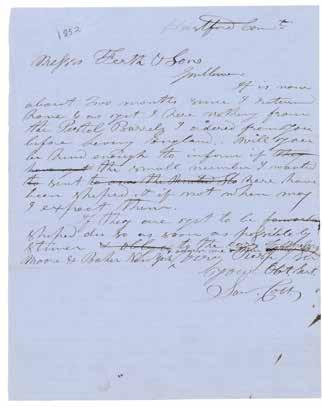 1852
Hartford Conn
Messrs Firth & Sons
Gentlemen
It is now
about two months since I return
home & as yet I here nothing from
the Pistol Barrels I ordered from you
before leving England. Will you
be kind enough to inform if
the whole number I wanted
to sent have
been shiped & if not when may
I expect them.
If they are yet to be
shiped do so as soon as possible by
Stimer to the
Moore & Baker New York
Very Resp
Your Obt Svt
Sam Colt